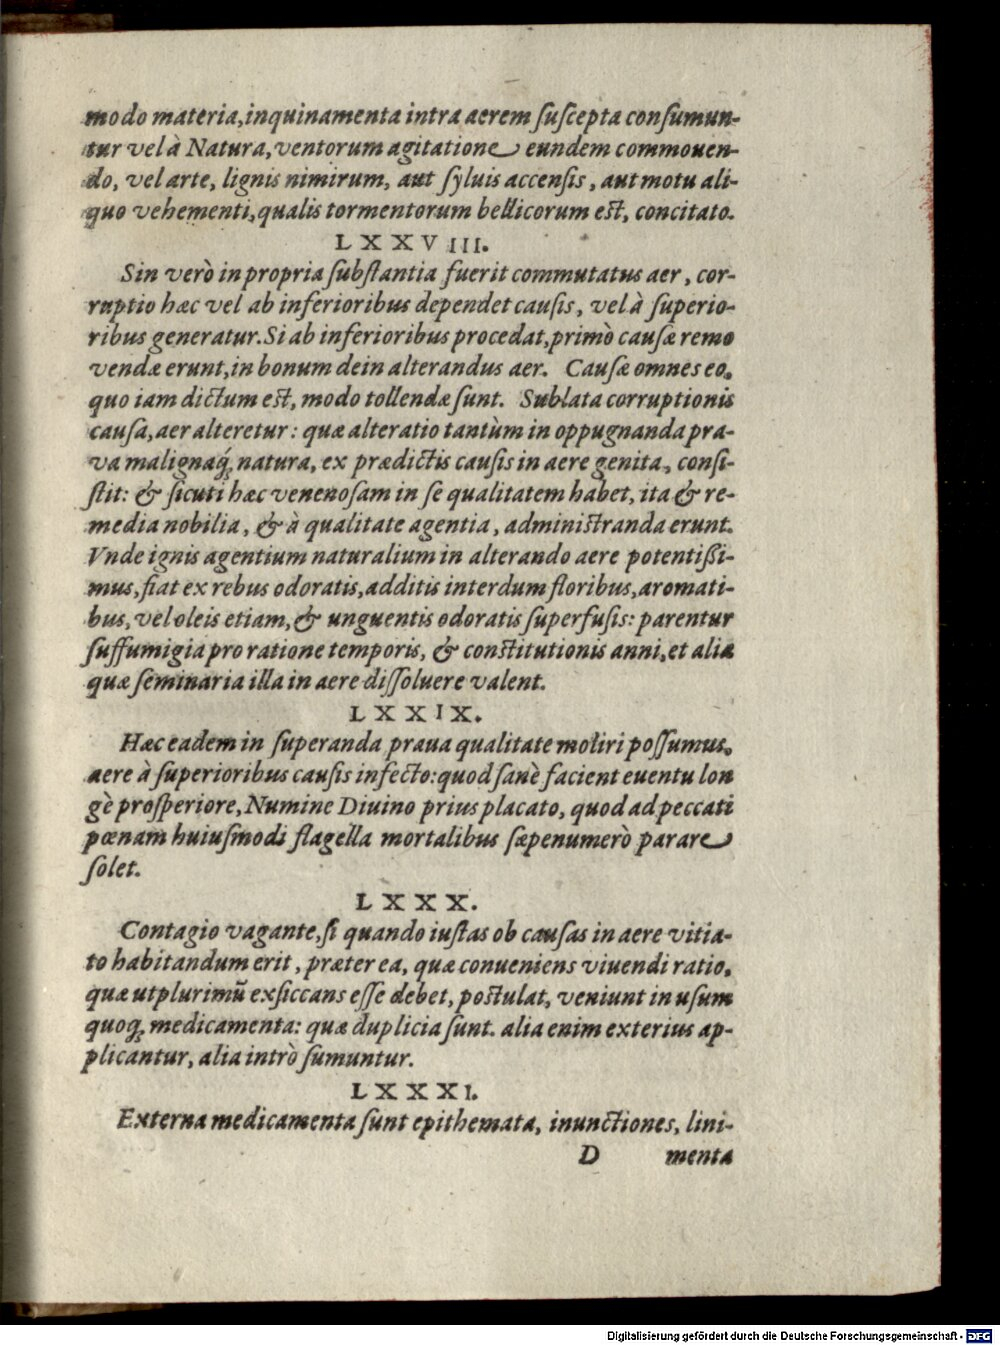 modo materia, inquinamenta intra aerem ſuſcepta conſumun-
tur vel à Natura, ventorum agitatione eundem commouen-
do, vel arte, lignis nimirum, aut ſyluis accenſis, aut motu ali-
quo vehementi, qualis tormentorum bellicorum est, concitato.
LXXVIII.
Sin verò in propria ſubſtantia fuerit commutatus aer, cor-
ruptio hæc vel ab inferioribus dependet cauſis, vel à ſuperio-
ribus generatur. Si ab inferioribus procedat, primò cauſæ remo
vendæ erunt, in bonum dein alterandus aer. Cauſæ omnes eo,
quo iam dictum est, modo tollendæ ſunt. Sublata corruptionis
cauſa, aer alteretur: quæ alteratio tantùm in oppugnanda pra-
va malignaq́; natura, ex prædictis cauſis in aere genita, conſi-
ſtit: & ſicuti hæc venenoſam in ſe qualitatem habet, ita & re-
media nobilia, & à qualitate agentia, adminiſtranda erunt.
Vnde ignis agentium naturalium in alterando aere potentißi-
mus, fiat ex rebus odoratis, additis interdum floribus, aromati-
bus, vel oleis etiam, & unguentis odoratis ſuperfuſis: parentur
ſuffumigia pro ratione temporis, & conſtitutionis anni, et alia
quæ ſeminaria illa in aere diſſoluere valent.
LXXIX.
Hæc eadem in ſuperanda praua qualitate moliri poſſumus,
aere à ſuperioribus cauſis infecto: quod ſanè facient euentu lon
gè proſperiore, Numine Diuino prius placato, quod ad peccati
pœnam huiuſmodi flagella mortalibus ſæpenumerò parare
ſolet.
LXXX.
Contagio vagante, ſi quando iuſtas ob cauſas in aere vitia-
to habitandum erit, præter ea, quæ conueniens viuendi ratio,
quæ utplurimũ exſiccans eſſe debet, poſtulat, veniunt in uſum
quoq; medicamenta: quæ duplicia ſunt. alia enim exterius ap-
plicantur, alia intrò ſumuntur.
LXXXI.
Externa medicamenta ſunt epithemata, inunctiones, lini-
D menta
Digitalisierung gefördert durch die Deutsche Forschungsgemeinschaft - DFG